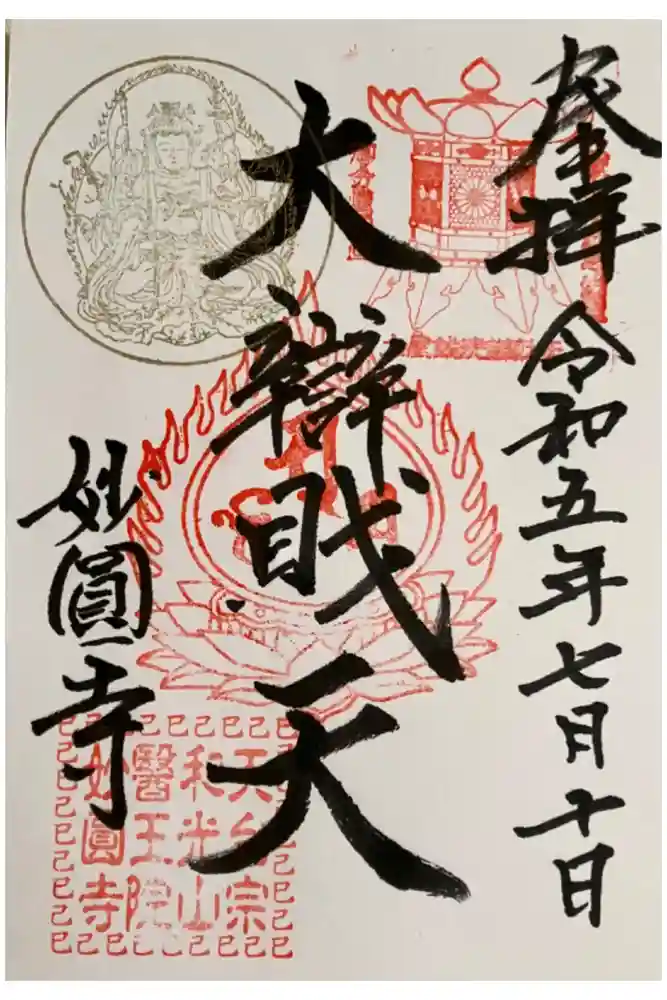 奉拝
令和五年七日十日
大辯戝天
妙圓寺
天台宗
和光山
醫王院
妙圓寺